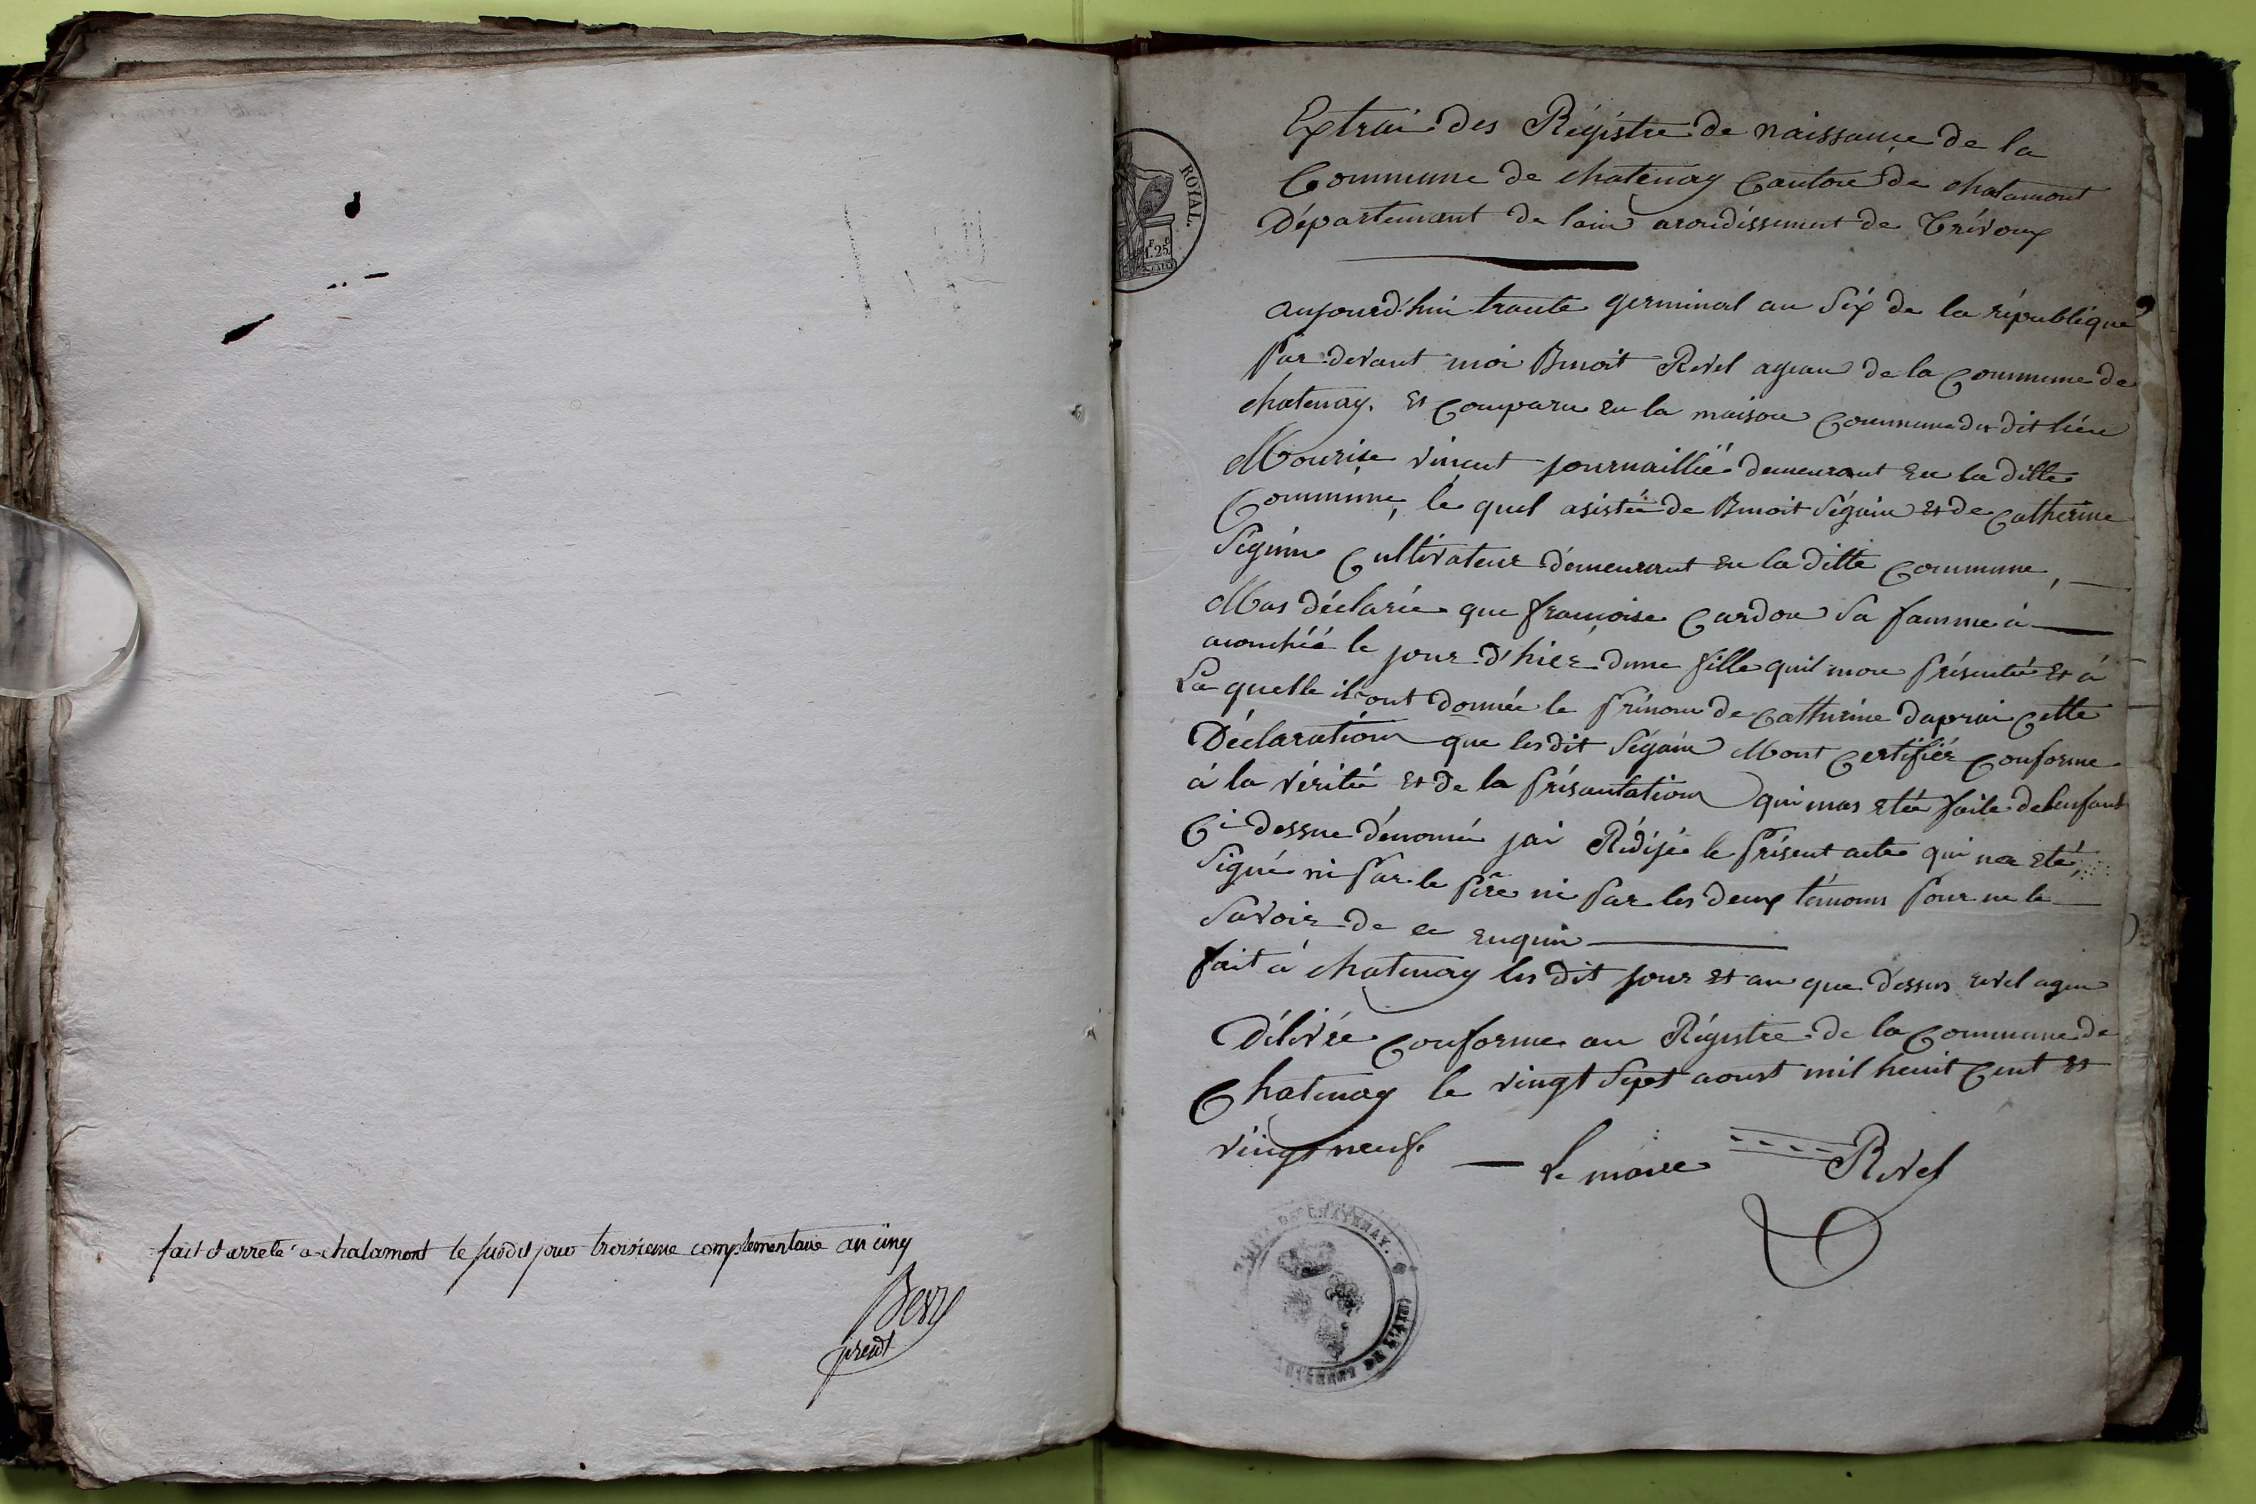 fait et arreté a chalamont le susdit jour troisieme complementaire an cinq
presdt
ROYAL.
1.25
Extrai des Régistre de naissance de la
Commune de chatenay Canton de chalamont
Département de lain arondissement de Trévoux
aujourd'hui trante germinal an Six de la république
par devant moi Benoit Revel agean de la Commune de
chatenay. Et Comparu en la maison Commune du dit lieu
Mourise vincent journaillié demeurant en la ditte
Commune, le quel asistée de Benoit Séguin et de Catherine
Séguin Cultivateur demeurant en la ditte Commune,
Mas déclarée que françoise Cardon Sa famme à
acouchéé le jour d'hier dune fille quil mon présentée Et à
La quelle il ont donnée le prénom de Catherine daprai Cette
Déclaration que les dit Séguin Mont Certifiér Conforme
à la véritée et de la présantation qui mas etée faite de lenfant
Ci dessue dénomé jai Rédijé le présent acte qui na eté
Signé ni par le père ni par les deux témoins pour ne le
Savoir de ce enquin
fait à chatenay les dit jour et an que dessus revel agen
Délivrée Conforme au Régistre de la Commune de
Chatenay le vingt Sept aoust mil heuit Cent et
vingt neuf.
Le maire Revel
DE CHATENAY.